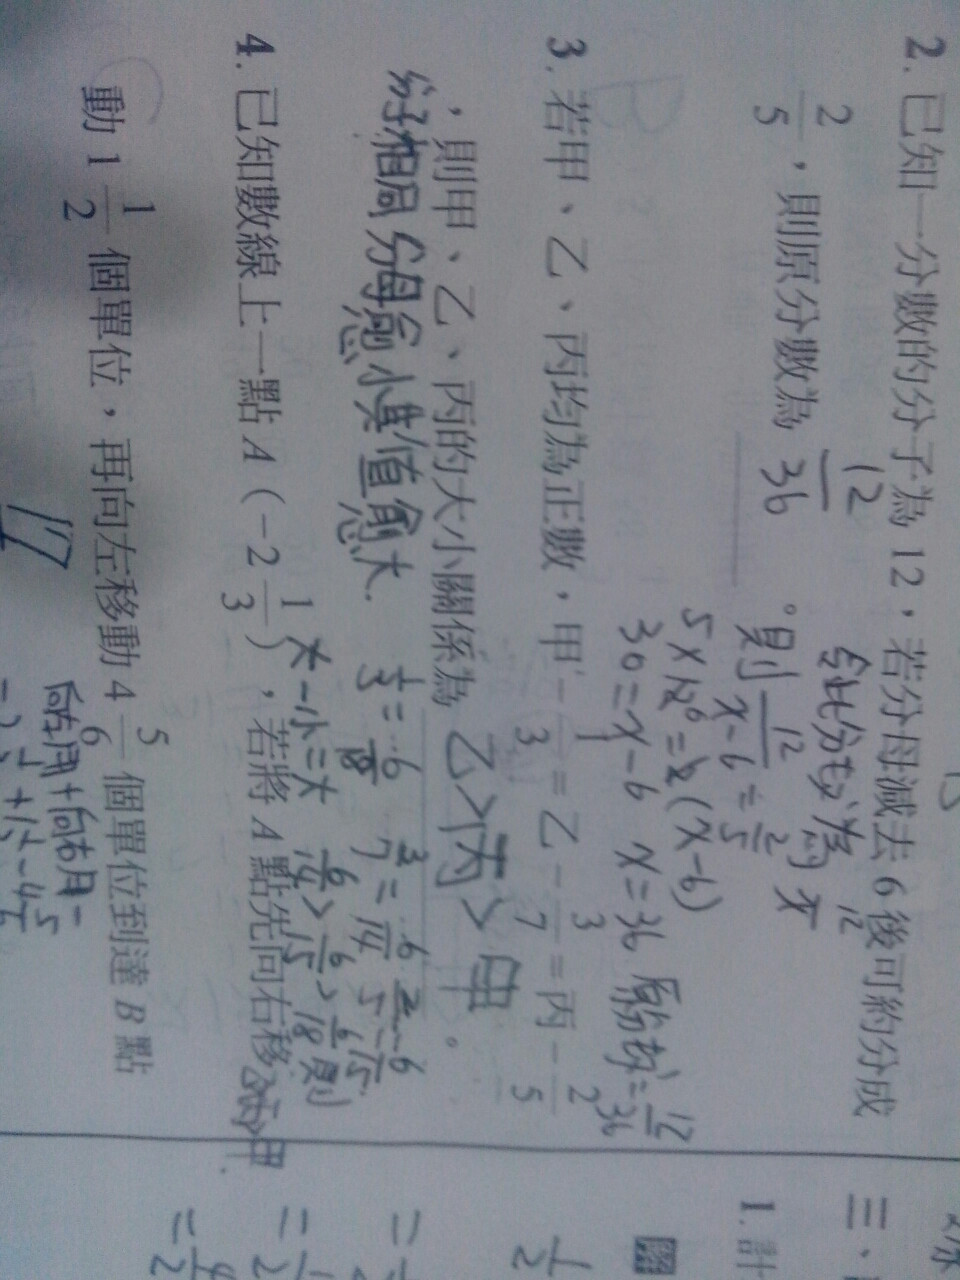 2. 已知一分數的分子為 12，若分母減去 6 後可約分成
2/5，則原分數為 12/36 。
令此分數為 12/x
則 12/x-6 = 2/5
5×12 6 = 2(x-6)
30=x-6 x=36 原分數=12/36
3. 若甲、乙、丙均為正數，甲-1/3=乙-3/7=丙-2/5
，則甲、乙、丙的大小關係為 乙>丙>甲 。
分子相同 分母愈小其值愈大. 1/3=6/18 3/7=6/14 2/5=6/15
6/14>6/15>6/18 則
乙>丙>甲.
4. 已知數線上一點 A（-2 1/3），若將 A 點先向右移
大-小=大
動 1 1/2 個單位，再向左移動 4 5/6 個單位到達 B 點
向右用+向左用-
17
三、
1. 計
1/2
=
=
=